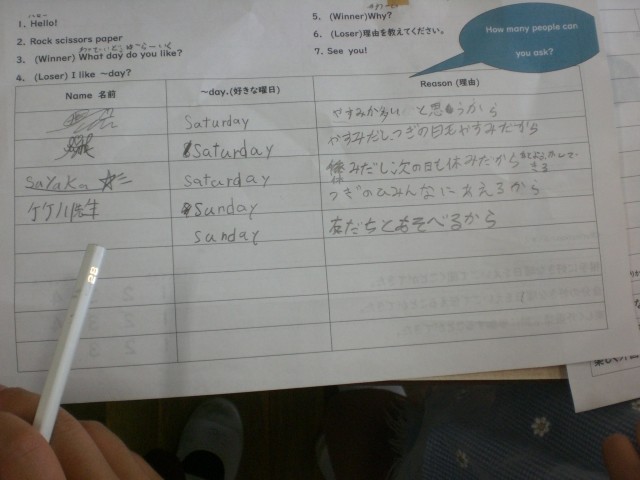 ハロー
1. Hello!
2. Rock scissors paper
3. (Winner) What day do you like?
4. (Loser) I like ～day?
5. (Winner)Why?
6. (Loser)理由を教えてください。
7. See you!
How many people can you ask?
Name 名前 ～day.(好きな曜日) Reason (理由)
Saturday やすみが多い と思うから
Saturday やすみだし、つぎの日もやすみだから
sayaka saturday 休みだし、次の日も休みだから
竹川先生 Sunday つぎのひみんなにあえるから
sunday 友だちとあそべるから